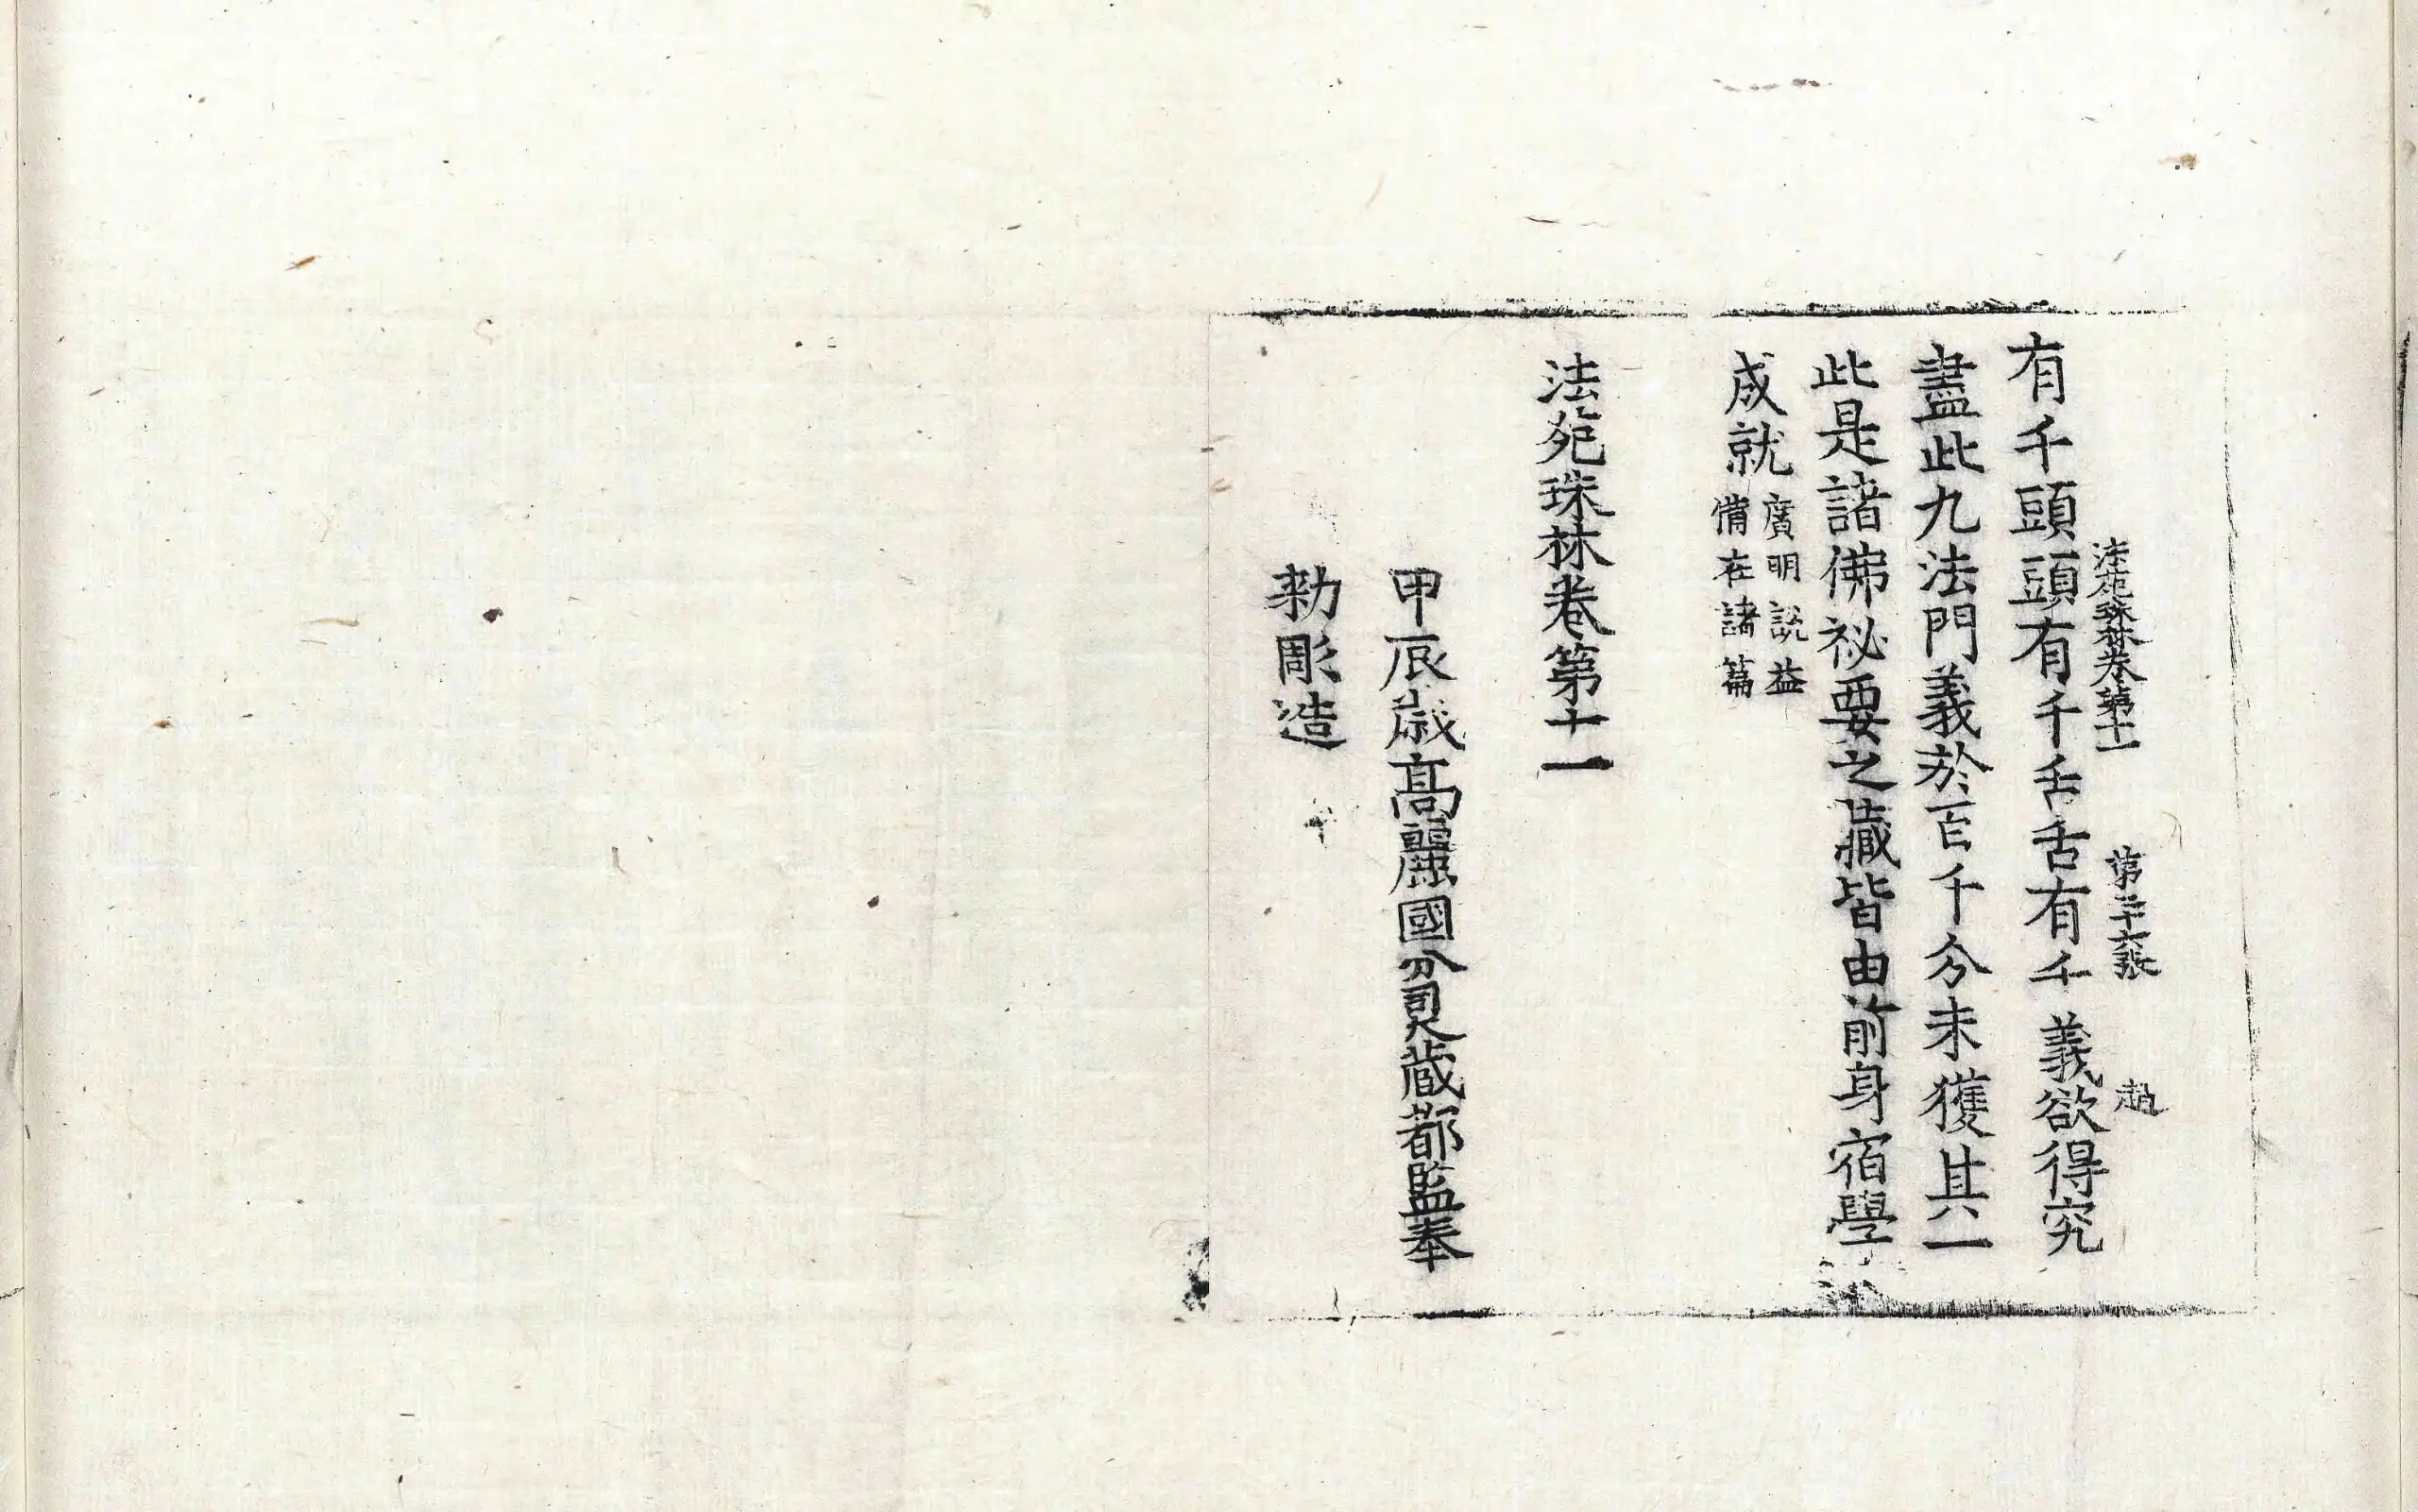 法苑珠林卷第十一 第三十六張 趙
有千頭頭有千舌舌有千義欲得究
盡此九法門義於百千分未獲其一
此是諸佛祕要之藏皆由前身宿學
成就廣明說益
備在諸篇
法苑珠林卷第十一
甲辰歲高麗國分司大藏都監奉
勅彫造